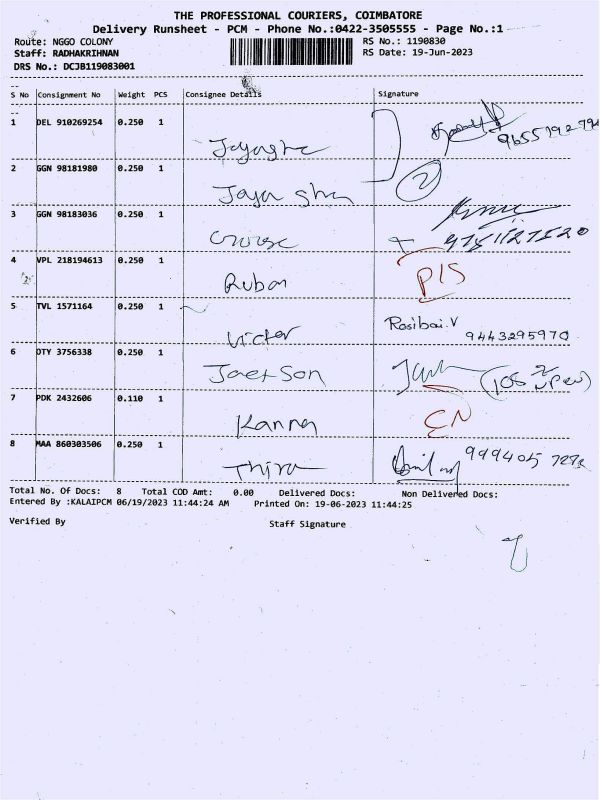 THE PROFESSIONAL COURIERS, COIMBATORE
Delivery Runsheet - PCM - Phone No.:0422-3505555 - Page No.:1
Route: NGGO COLONY RS No.: 1190830
Staff: RADHAKRIHNAN RS Date: 19-Jun-2023
DRS No.: DCJB119083001
S No Consignment No Weight PCS Consignee Details Signature
1 DEL 910269254 0.250 1
2 GGN 98181980 0.250 1
Jaya sha 2
3 GGN 98183036 0.250 1
4 VPL 218194613 0.250 1
Ruban P/S
5 TVL 1571164 0.250 1
Victor Rosibai.V 9443295970
6 OTY 3756338 0.250 1
Jackson
7 PDK 2432606 0.110 1
Kanna
8 MAA 860303506 0.250 1
Thira
Total No. Of Docs: 8 Total COD Amt: 0.00 Delivered Docs: Non Delivered Docs:
Entered By :KALAIPCM 06/19/2023 11:44:24 AM Printed On: 19-06-2023 11:44:25
Verified By Staff Signature